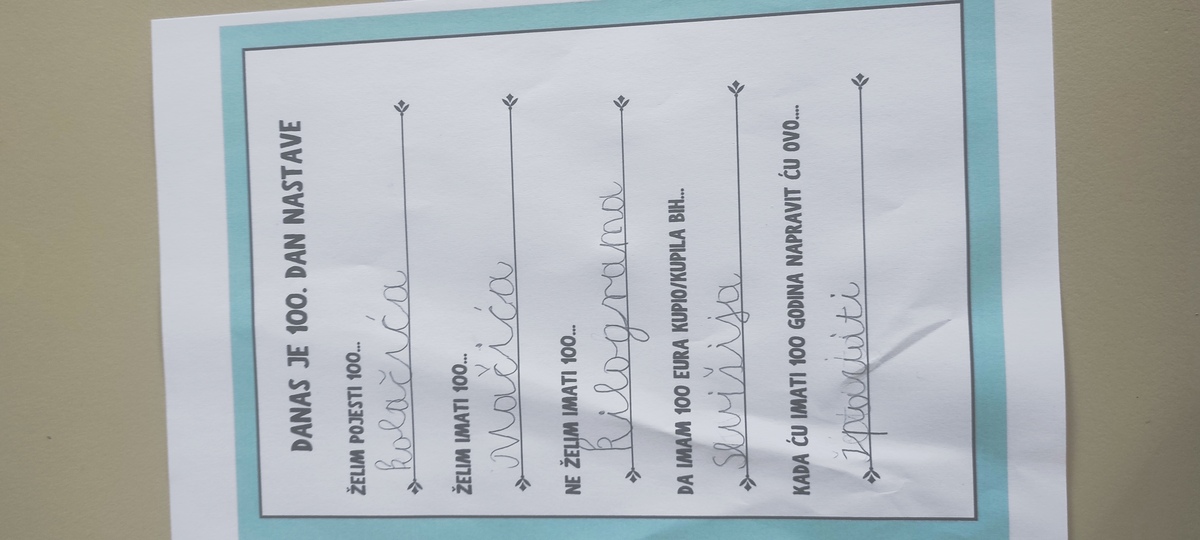 DANAS JE 100. DAN NASTAVE
ŽELIM POJESTI 100...
kolačića
ŽELIM IMATI 100...
Mačića
NE ŽELIM IMATI 100...
Kilograma
DA IMAM 100 EURA KUPIO/KUPILA BIH...
KADA ĆU IMATI 100 GODINA NAPRAVIT ĆU OVO....